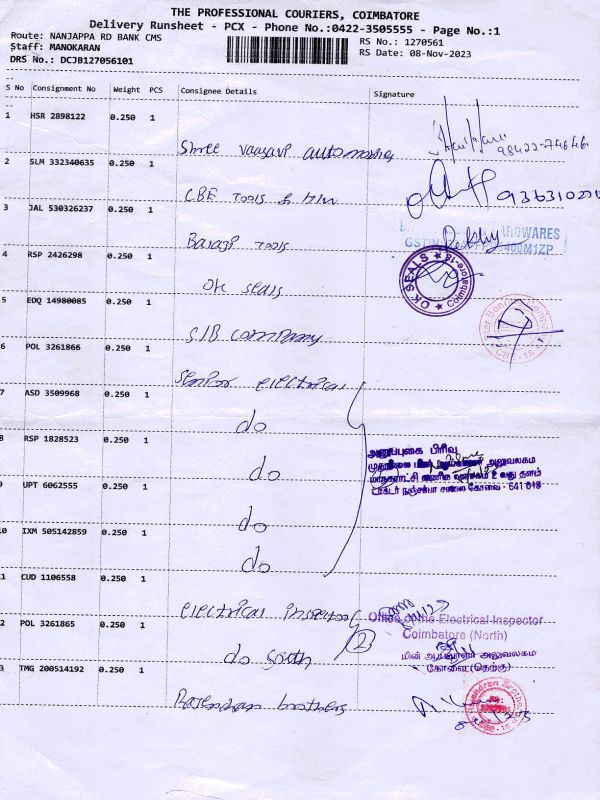 THE PROFESSIONAL COURIERS, COIMBATORE
Delivery Runsheet - PCX - Phone No.:0422-3505555 - Page No.:1
Route: NANJAPPA RD BANK CMS
RS No.: 1270561
Staff: MANOKARAN
RS Date: 08-Nov-2023
DRS No.: DCJB127056101
S No Consignment No Weight PCS Consignee Details Signature
1 HSR 2898122 0.250 1
Shree vaasavi automobiles
98422-74646
2 SLM 332340635 0.250 1
CBE Tools & H/w
3 JAL 530326237 0.250 1
Balaji Tools
4 RSP 2426298 0.250 1
OK seals
OK SEALS
Coimbatore-18
5 EDQ 14980085 0.250 1
SIB company
6 POL 3261866 0.250 1
Senior electrical
7 ASD 3509968 0.250 1
do
8 RSP 1828523 0.250 1
do
அனுப்புகை பிரிவு
அலுவலகம
2 வது தளம்
கோவை - 641 018
9 UPT 6062555 0.250 1
do
10 IXM 505142859 0.250 1
do
1 CUD 1106558 0.250 1
electrical inspector
2 POL 3261865 0.250 1
do south
2
Office of the Electrical Inspector
Coimbatore (North)
அலுவலகம
கோவை (தெற்கு)
3 TMG 200514192 0.250 1
Rajendran brothers